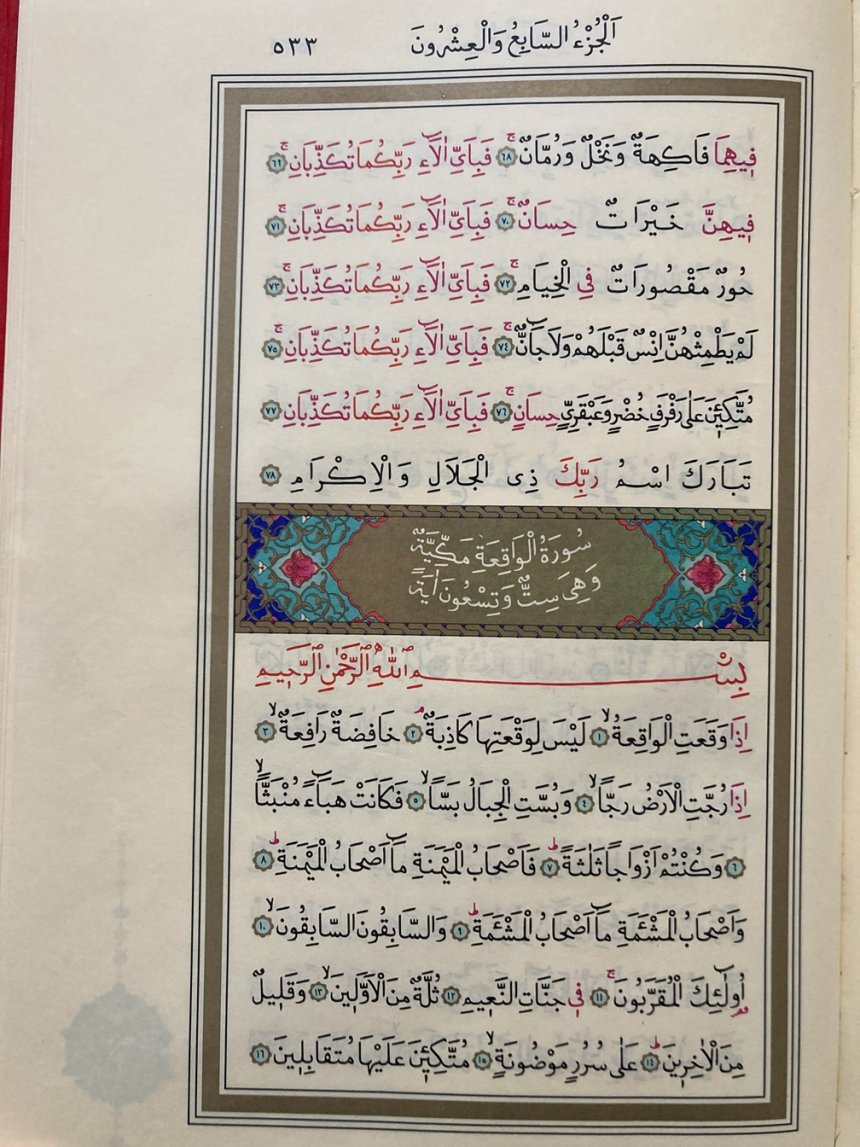 اَلْجُزْءُ السَّابِعُ وَالْعِشْرُونَ ٥٣٣
فِيهِمَا فَاكِهَةٌ وَنَخْلٌ وَرُمَّانٌۚ ٦٨ فَبِاَىِّ اٰلَٓاءِ رَبِّكُمَا تُكَذِّبَانِۚ ٦٩
فِيهِنَّ خَيْرَاتٌ حِسَانٌۚ ٧٠ فَبِاَىِّ اٰلَٓاءِ رَبِّكُمَا تُكَذِّبَانِۚ ٧١
حُورٌ مَقْصُورَاتٌ فِى الْخِيَامِۚ ٧٢ فَبِاَىِّ اٰلَٓاءِ رَبِّكُمَا تُكَذِّبَانِۚ ٧٣
لَمْ يَطْمِثْهُنَّ اِنْسٌ قَبْلَهُمْ وَلَا جَٓانٌّۚ ٧٤ فَبِاَىِّ اٰلَٓاءِ رَبِّكُمَا تُكَذِّبَانِۚ ٧٥
مُتَّكِـِٔينَ عَلٰى رَفْرَفٍ خُضْرٍ وَعَبْقَرِىٍّ حِسَانٍۚ ٧٦ فَبِاَىِّ اٰلَٓاءِ رَبِّكُمَا تُكَذِّبَانِ ٧٧
تَبَارَكَ اسْمُ رَبِّكَ ذِى الْجَلَالِ وَالْاِكْرَامِ ٧٨
سُورَةُ الْوَاقِعَةِ مَكِّيَّةٌ
وَهِىَ سِتٌّ وَتِسْعُونَ اٰيَةً
بِسْمِ اللّٰهِ الرَّحْمٰنِ الرَّحِيمِ
اِذَا وَقَعَتِ الْوَاقِعَةُۙ ١ لَيْسَ لِوَقْعَتِهَا كَاذِبَةٌۢ ٢ خَافِضَةٌ رَافِعَةٌۙ ٣
اِذَا رُجَّتِ الْاَرْضُ رَجًّاۙ ٤ وَبُسَّتِ الْجِبَالُ بَسًّاۙ ٥ فَكَانَتْ هَبَٓاءً مُنْبَثًّاۙ
٦ وَكُنْتُمْ اَزْوَاجًا ثَلٰثَةًۜ ٧ فَاَصْحَابُ الْمَيْمَنَةِ مَٓا اَصْحَابُ الْمَيْمَنَةِۜ ٨
وَاَصْحَابُ الْمَشْـَٔمَةِ مَٓا اَصْحَابُ الْمَشْـَٔمَةِۜ ٩ وَالسَّابِقُونَ السَّابِقُونَۙ ١٠
اُو۬لٰٓئِكَ الْمُقَرَّبُونَۚ ١١ فِى جَنَّاتِ النَّعِيمِ ١٢ ثُلَّةٌ مِنَ الْاَوَّلِينَۙ ١٣ وَقَلِيلٌ
مِنَ الْاٰخِرِينَۜ ١٤ عَلٰى سُرُرٍ مَوْضُونَةٍۙ ١٥ مُتَّكِـِٔينَ عَلَيْهَا مُتَقَابِلِينَ ١٦